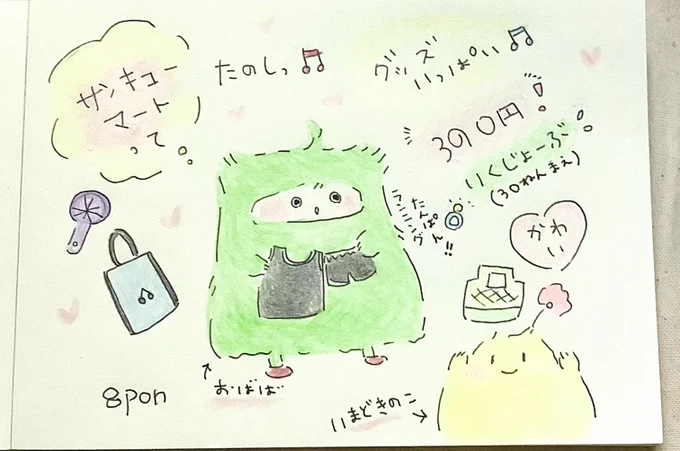 サンキュー
マート
って
たのしっ
グッズ
いっぱい
390円!
りくじょーぶ!
(30ねんまえ)
たんぱん
ランニング!!
かわ
いい
おばば
いまどきのこ
8pon